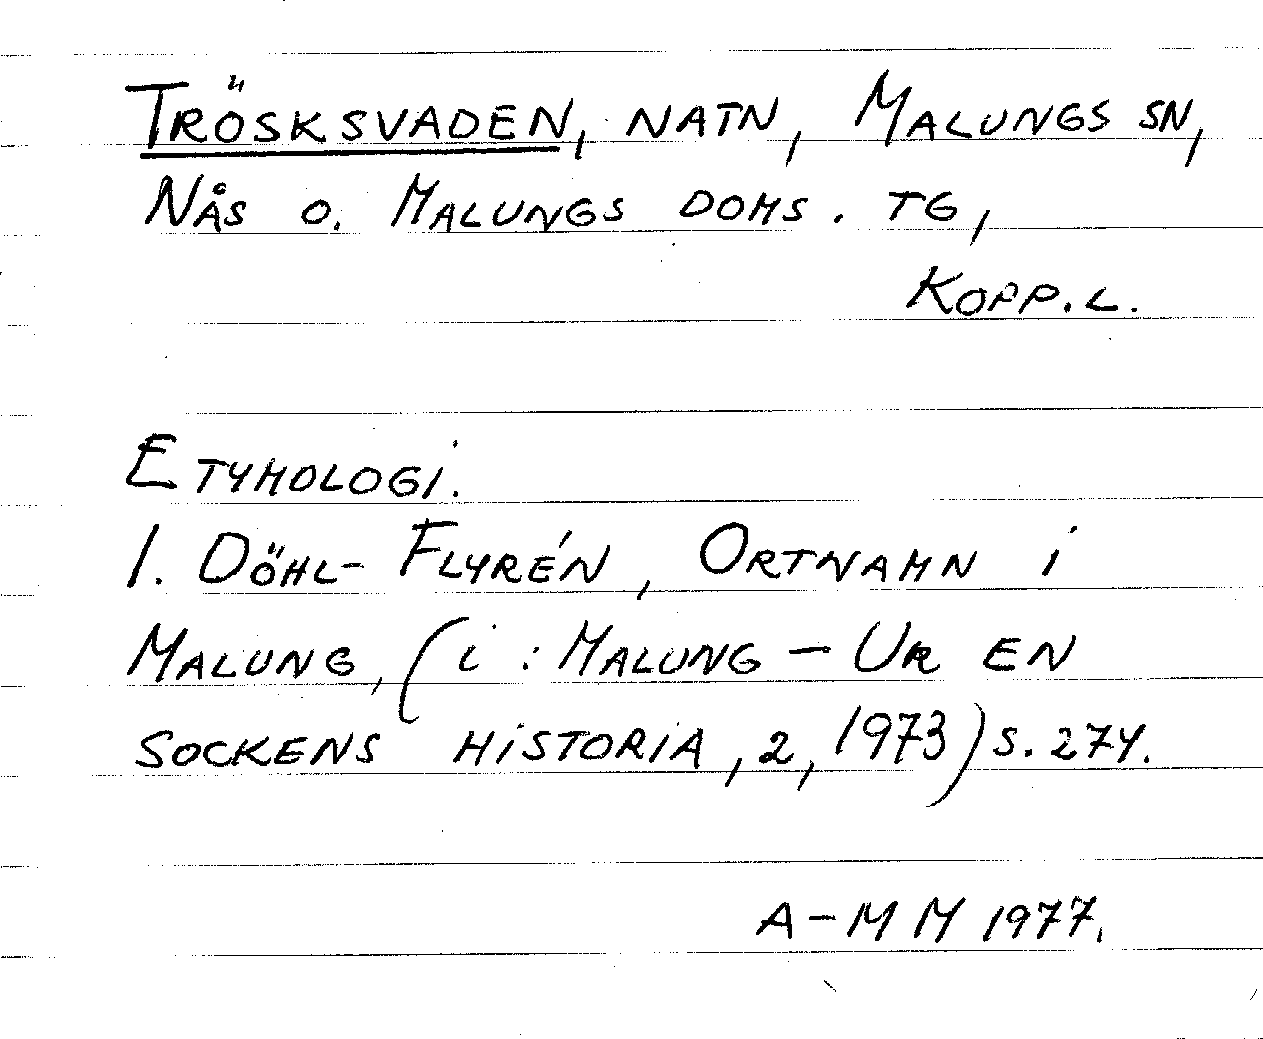 TRÖSKSVADEN, NATN, MALUNGS SN,
NÅS O. MALUNGS DOMS. TG,
KOPP. L.
ETYMOLOGI.
I. DÖHL-FLYRÉN, ORTNAMN I
MALUNG, (i: MALUNG - UR EN
SOCKENS HISTORIA, 2, 1973) S. 274.
A-M M 1977.